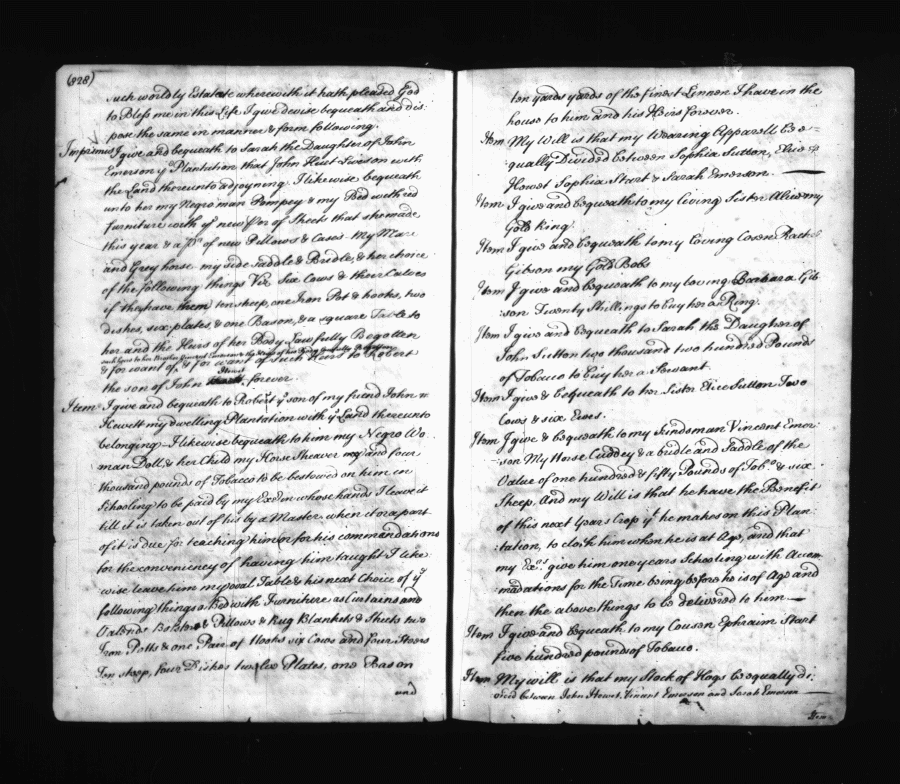 (828)
such worldly Estate wherewith it hath pleased God
to Bless me in this Life I give devise bequeath and dis:
pose the same in manner & form following.
Imprimus I give and bequeath to Sarah the Daughter of John
Emerson ye Plantation that John Hewt Swson with
the Land thereunto adjoyning. I likewise bequeath
unto her my Negro man Pompey & my Bed with ed
furniture with ye new Pr of Sheets that she made
this year & a Pr of new Pillows & Cases My Mare
and Grey horse my side saddle & Bridle, & her choice
of the following things Viz Six Cows & their Calves
if they have them ten sheep, one Iron Pot & hooks, two
dishes, six plates, & one Bason, & a square Table to
her and the Heirs of her Body Lawfully Begotten
& for want of such Heirs to Robert
the son of John forever.
Item I give and bequeath to Robert ye son of my friend John
Howett my dwelling Plantation with ye Land thereunto
belonging I likewise bequeath to him my Negro Wo
man Doll, & her Child my Horse Sheaver and four
thousand pounds of Tobacco to be bestowed on him in
Schooling to be paid by my Exr in whose hands I leave it
till it is taken out of his by a Master when it or a part
of it is due for teaching him or for his commendations
for the conveniency of having him taught I like
wise leave him my oval Table & his next Choice of ye
following things a Bed with Furniture as Curtains and
Valends Bolster & Pillows & Rug Blankets & Sheets two
Iron Potts & one Pair of Hooks six Cows and four Steers
Ten sheep, four Dishes twelve Plates, one Bason
and
ten yards yards of the finest Linnen I have in the
house to him and his Heirs forever.
Item My Will is that my Wearing Apparell be e
qually Divided between Sophia Sutton, Elice
Howet Sophia Start & Sarah Emerson.
Item I give and bequeath to my living Sister Alice my
Gold Ring.
Item I give and bequeath to my Loving Cosen Rachel
Gibson my Gold Bobs
Item I give and bequeath to my loving Barbara Gib
son Twenty Shillings to buy her a Ring.
Item I give and bequeath to Sarah the Daughter of
John Sutton two thousand two hundred Pounds
of Tobacco to buy her a Servant.
Item I give & bequeath to her Sister Elice Sutton Two
Cows & six Ewes.
Item I give & bequeath to my Kindsman Vincent Emer
son My Horse Cuddey & a bridle and Saddle of the
Value of one hundred & fifty Pounds of Tobo & six
Sheep, And my Will is that he have the Benefit
of this next Years Crop yt he makes on this Plan
tation, to cloth him when he is at Age, and that
my Exrs give him one years Schooling with Accom
madations for the Time being before he is of Age and
then the above things to be delivered to him
Item I give and bequeath to my Cousen Ephraim Start
five hundred pounds of Tobacco.
Item My will is that my Stock of Hogs be equally di:
vided between John Howet, Vincent Emerson and Sarah Emerson
Item